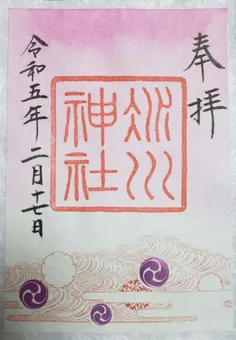 奉拝
氷川
神社
令和五年二月十七日